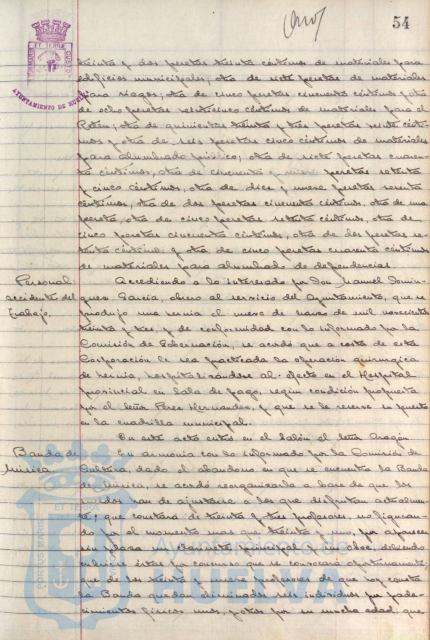 54
AYUNTAMIENTO DE HUELVA
treinta y dos pesetas treinta céntimos de materiales para
edificios municipales; otra de siete pesetas de materiales
para riegos; otra de cinco pesetas cincuenta céntimos y otra
de ocho pesetas veinticinco céntimos de materiales para el
otra de quinientas treinta y tres pesetas veinte cénti-
mos y otra de seis pesetas cinco céntimos de materiales
para alumbrado público; otra de siete pesetas cuaren-
ta céntimos, otra de cincuenta y nueve pesetas setenta
y cinco céntimos, otra de diez y nueve pesetas sesenta
céntimos, otra de dos pesetas cincuenta céntimos, otra de una
peseta, otra de cinco pesetas setenta céntimos, otra de
cinco pesetas cincuenta céntimos, otra de dos pesetas se-
tenta céntimos y otra de cinco pesetas cuarenta céntimos
de materiales para alumbrado de dependencias.
Personal
accidente del
trabajo.
Accediendo a lo interesado por Don Manuel Domín-
guez García, obrero al servicio del Ayuntamiento, que se
produjo una hernia el nueve de marzo de mil novecientos
treinta y tres, y de conformidad con lo informado por la
Comisión de Gobernación, se acordó que a costa de esta
Corporación le sea practicada la operación quirúrgica
de hernia, hospitalizándose al efecto en el Hospital
provincial en sala de pago, según condición propuesta
por el Señor Pérez Hernández, y que se le reserve su puesto
en la cuadrilla municipal.
En este acto entró en el Salón el Señor Aragón.
Banda de
Música.
En armonía con lo informado por la Comisión de
Cultura, dado el abandono en que se encuentra la Banda
de Música, se acordó reorganizarla a base de que los
sueldos han de ajustarse a los que disfrutan actualmen-
te; que constará de treinta y tres profesores, no figuran-
do por el momento mas que treinta y uno, por aparecer
sin plaza un clarinete principal y un oboe, debiendo
cubrirse éstas por concurso que se convocará oportunamente;
que de los treinta y nueve profesores de que hoy consta
la Banda quedan eliminados seis individuos por pade-
cimientos físicos unos, y otros por su mucha edad, que
Ayuntamiento de
HUELVA